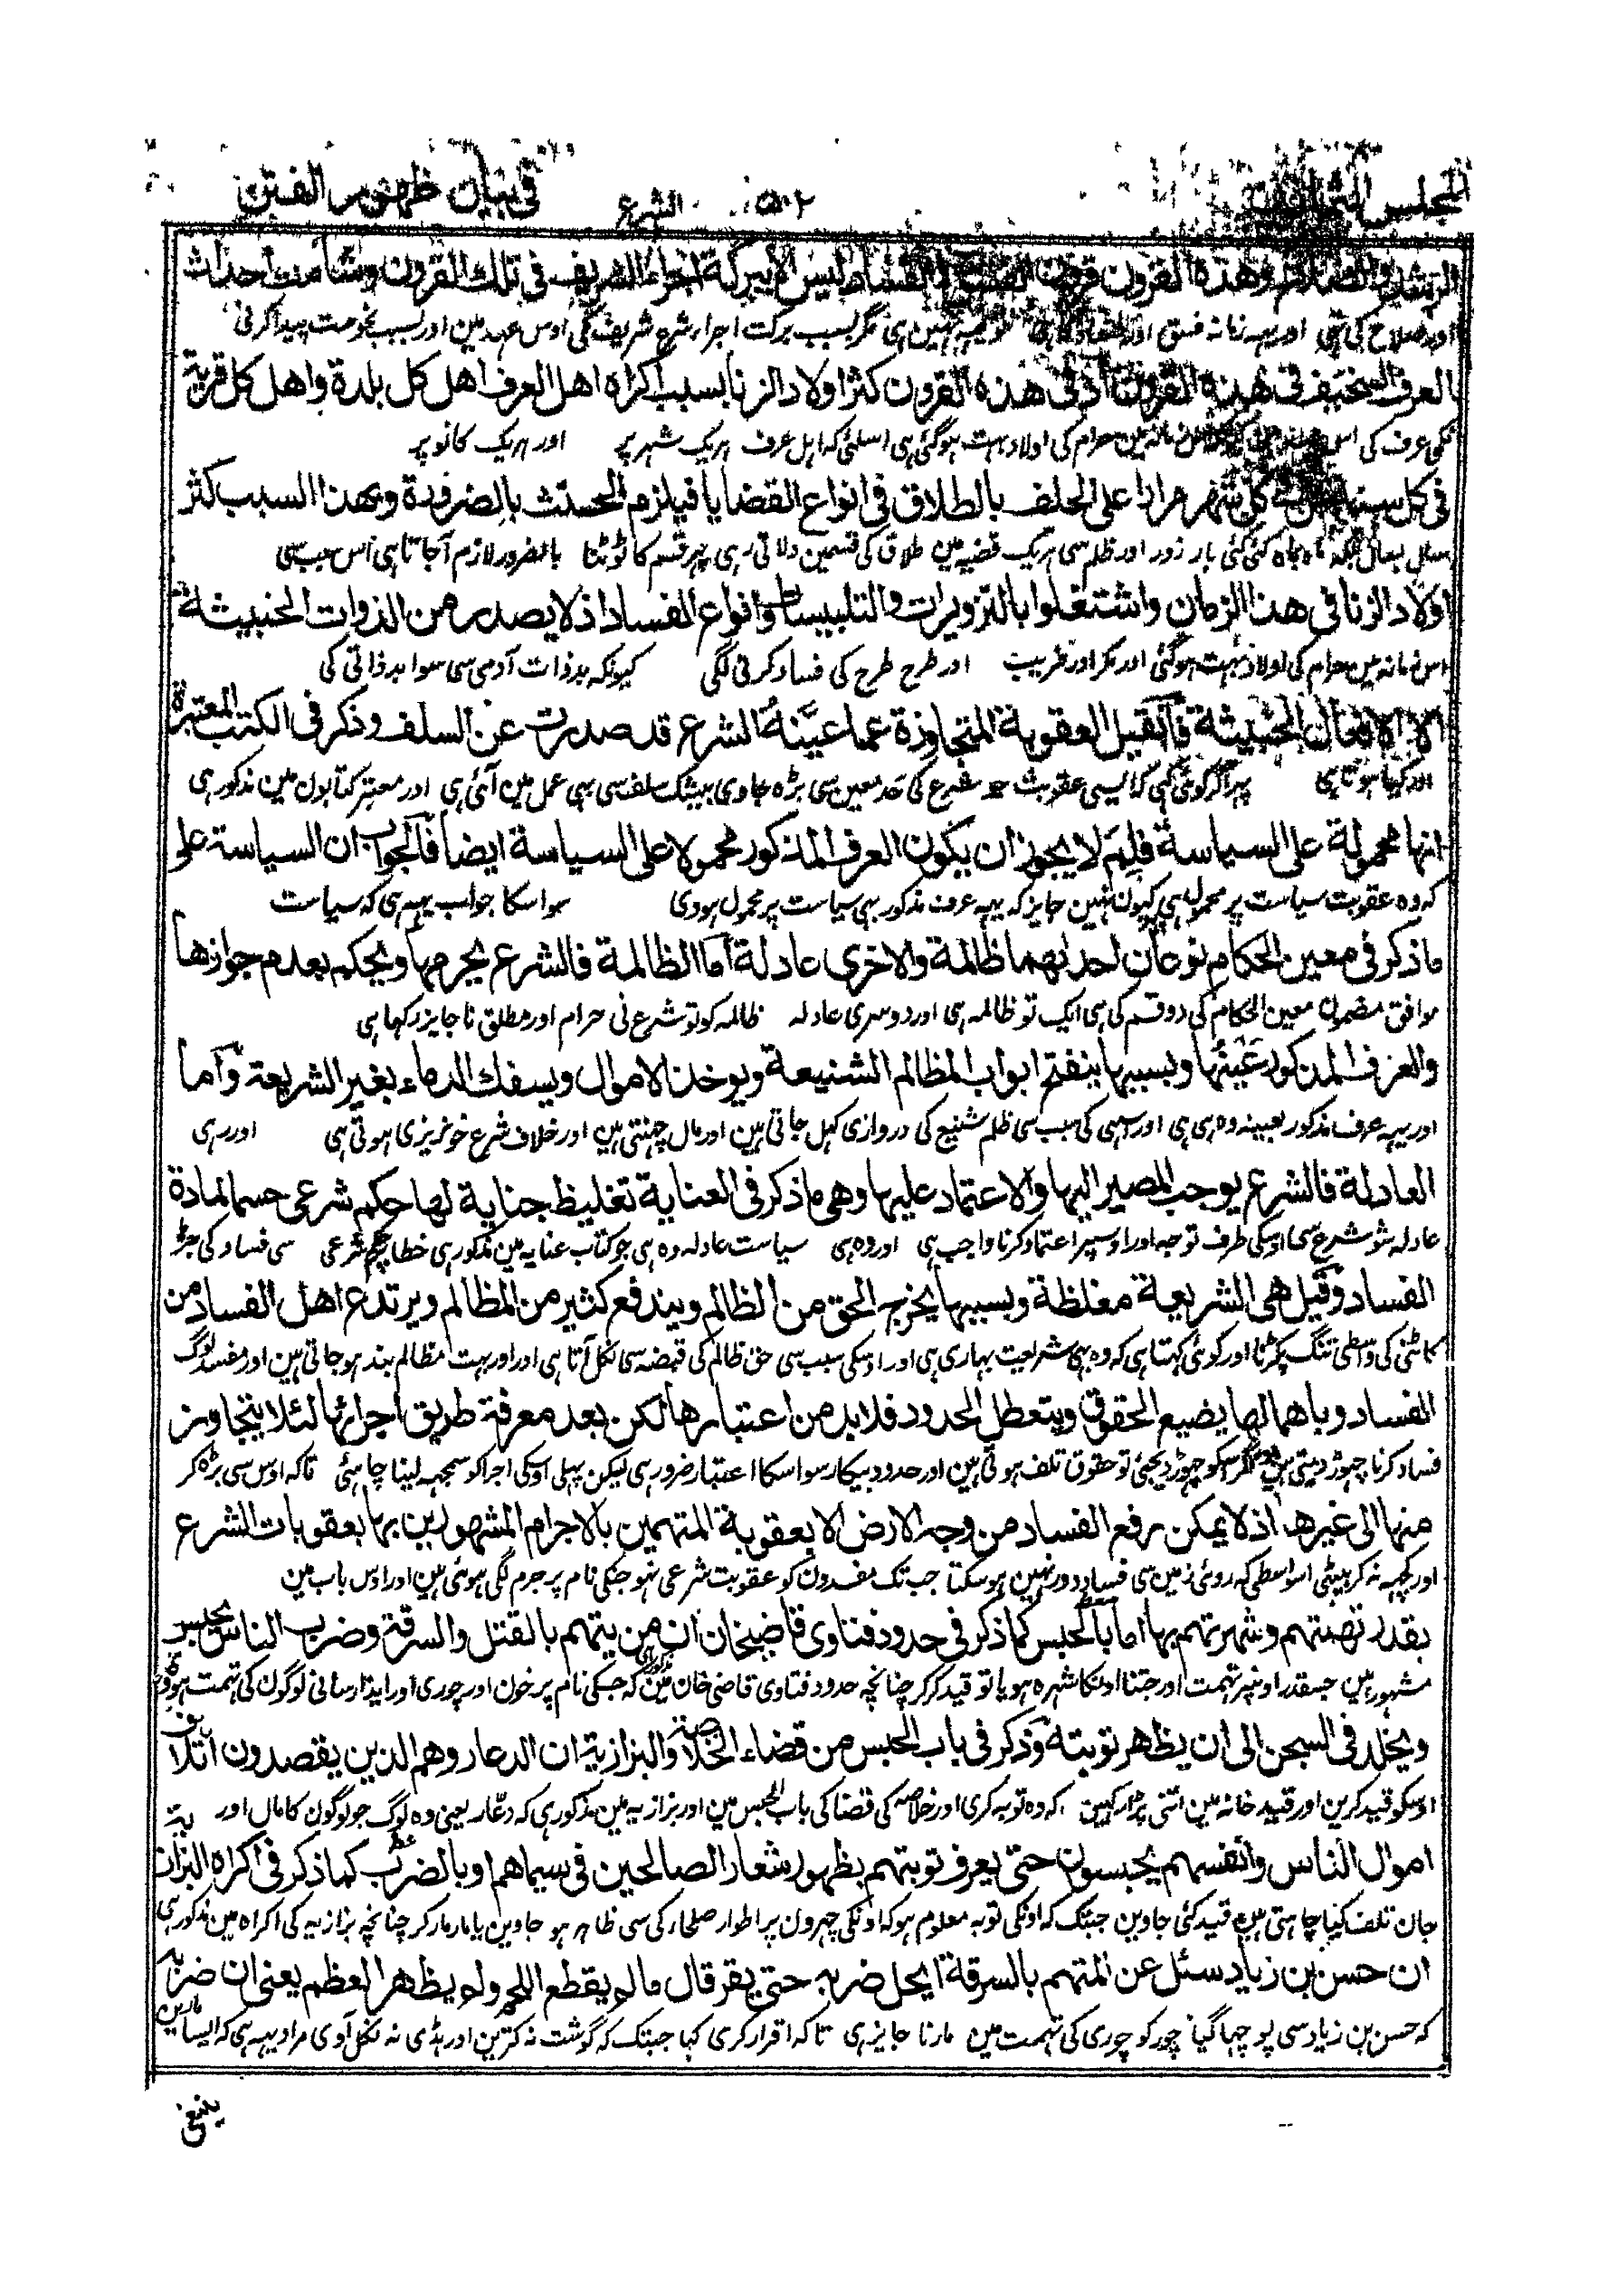 المجلس
۵۰۲
الشرع
فی بیان ظهور الفتن
الرشد والصلاح وهذه القرون قرون الفسق والفساد ليس الا ببركة اجراء الشريف فی تلك القرون وشأمت احداث
اور صلاح کی تہی اور یہہ زمانہ فسق اور فساد نہین ہی مگر بسبب برکت اجراء شرع شریف کی اوس عہد مین اور بسبب نحوست پیدا کرنی
العرف السخيف فی هذه القرون اذ فی هذه القرون كثر اولاد الزنا بسبب اكراه اهل العرف اهل كل بلدة واهل كل قرية
نکمی عرف کی اس زمانہ مین حرام کی اولاد بہت ہوگئی ہی اسلئی کہ اہل عرف ہریک شہر پر اور ہریک کانو پر
فی كل سنة بل فی كل شهر مرارا علی الحلف بالطلاق فی انواع القضايا فيلزم الحنث بالضرورة وبهذا السبب كثر
سال بسال بلکہ ماہ بماہ کئی کئی بار زور اور ظلم سی ہریک قضیہ مین طلاق کی قسمین دلاتی رہی پہر قسم کا ٹوٹنا بالضرور لازم آجاتا ہی اس سبب سی
اولاد الزنا فی هذا الزمان واشتغلوا بالتزويرات والتلبيسات وانواع الفساد اذ لا يصدر من الذوات الخبيثة
اس زمانہ مین حرام کی اولاد بہت ہوگئی اور مکر اور فریب اور طرح طرح کی فساد کرنی لگی کیونکہ بدذات آدمی سی سوا بدذاتی کی
الا الافعال الخبيثة فان قيل العقوبة المتجاوزة عما عينه الشرع قد صدرت عن السلف وذكر فی الكتب المعتبرة
اور کیا ہوتا ہی پہر اگر کوئی کہی کہ ایسی عقوبت جو شرع کی حد معین سی بڑہ جاوی بیشک سلف سی بہی عمل مین آئی ہی اور معتبر کتابون مین مذکور ہی
انها محمولة علی السياسة فلم لا يجوز ان يكون العرف المذكور محمولا علی السياسة ايضا فالجواب ان السياسة علی
کہ وہ عقوبت سیاست پر محمول ہی کیون نہین جایز کہ یہہ عرف مذکور بہی سیاست پر محمول ہووی سو اسکا جواب یہہ ہی کہ سیاست
ما ذكر فی معين الحكام نوعان احدهما ظالمة والاخری عادلة اما الظالمة فالشرع يحرمها ويحكم بعدم جوازها
موافق مضمون معین الحکام کی دو قسم کی ہی ایک تو ظالمہ ہی اور دوسری عادلہ ظالمہ کو تو شرع نی حرام اور مطلق ناجایز رکہا ہی
والعرف المذكور عينها وبسببها ينفتح ابواب المظالم الشنيعة ويوخذ الاموال ويسفك الدماء بغير الشريعة واما
اور یہہ عرف مذکور بعینہ وہ ہی ہی اور اسی کی سبب سی ظلم شنیع کی دروازی کہل جاتی ہین اور مال چہنتی ہین اور خلاف شرع خونریزی ہوتی ہی اور رہی
العادلة فالشرع يوجب المصير اليها والاعتماد عليها وهی ما ذكر فی العناية تغليظ جناية لها حكم شرعی حسما لمادة
عادلہ سو شرع سی اوسکی طرف توجہ اور اوسپر اعتماد کرنا واجب ہی اور وہ ہی سیاست عادلہ وہ ہی جو کتاب عنایہ مین مذکور ہی خطا پر حکم شرعی سی فساد کی جڑ
الفساد وقيل هی الشريعة مغلظة وبسببها يخرج الحق من الظالم ويندفع كثير من المظالم ويرتدع اهل الفساد من
کاٹنی کی واسطی تنگ پکڑنا اور کوئی کہتا ہی کہ وہ بہی شریعت بہاری ہی اور اوسکی سبب سی حق ظالم کی قبضہ سی نکل آتا ہی اور اور بہت مظالم بند ہوجاتی ہین اور مفسد لوگ
الفساد وباهمالها يضيع الحقوق ويتعطل الحدود فلا بد من اعتبارها لكن بعد معرفة طريق اجرائها لئلا يتجاوز
فساد کرنا چہوڑ دیتی ہین اگر اسکو چہوڑ دیجئی تو حقوق تلف ہوتی ہین اور حدود بیکار سو اسکا اعتبار ضرور ہی لیکن پہلی اوسکی اجرا کو سمجہہ لینا چاہئی تاکہ اوس سی بڑہ کر
منها الی غيرها اذ لا يمكن رفع الفساد من وجه الارض الا بعقوبة المتهمين بالاجرام المشهورين بها بعقوبات الشرع
اور کچہہ نہ کر بیٹہی اسواسطی کہ روئی زمین سی فساد دور نہین ہوسکتا جب تک مفسدون کو عقوبت شرعی نہو جنکی نام پر جرم لگی ہوئی ہین اور اوس باب مین
بقدر تهمتهم وشهرتهم بها اما بالحبس كما ذكر فی حدود فتاوی قاضيخان ان من يتهم بالقتل والسرقة وضرب الناس يحبس
مشہور ہین جسقدر اونپر تہمت اور جتنا اونکا شہرہ ہو یا تو قید کر کر چنانچہ حدود فتاوی قاضی خان مین مذکور ہی کہ جسکی نام پر خون اور چوری اور ایذا رسانی لوگون کی تہمت ہو
ويخلد فی السجن الی ان يظهر توبته وذكر فی باب الحبس من قضاء الخلاصة والبزازية ان الدعار وهم الذين يقصدون اتلاف
اوسکو قید کرین اور قید خانہ مین اتنی پڑا رکہین کہ وہ توبہ کری اور خلاصہ کی قضا کی باب الحبس مین اور بزازیہ مین مذکور ہی کہ دعّار یعنی وہ لوگ جو لوگون کا مال اور
اموال الناس وانفسهم يحبسون حتی يعرف توبتهم بظهور شعار الصالحين فی سيماهم او بالضرب كما ذكر فی اكراه البزازية
جان تلف کیا چاہتی ہین قید کئی جاوین جبتک کہ اونکی توبہ معلوم ہو کہ اونکی چہرون پر اطوار صلحاء کی سی ظاہر ہو جاوین یا مار مار کر چنانچہ بزازیہ کی اکراہ مین مذکور ہی
ان حسن بن زياد سئل عن المتهم بالسرقة ايحل ضربه حتی يقر قال ما لم يقطع اللحم ولم يظهر العظم يعنی ان ضربه
کہ حسن بن زیاد سی پوچہا گیا چور کو چوری کی تہمت مین مارنا جایز ہی تاکہ اقرار کری کہا جبتک کہ گوشت نہ کترین اور ہڈی نہ نکل آوی مراد یہہ ہی کہ ایسا مارین
ينبغی